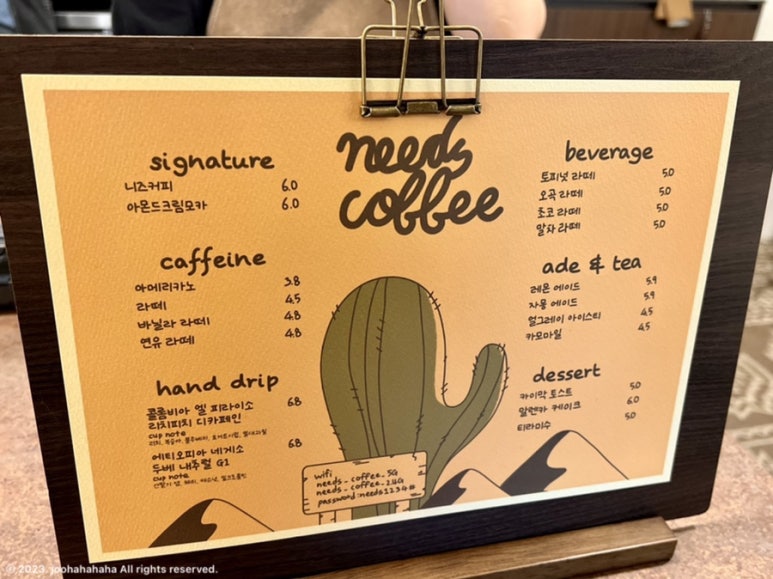 needs
coffee
signature
니즈커피 6.0
아몬드크림모카 6.0
caffeine
아메리카노 3.8
라떼 4.5
바닐라 라떼 4.8
연유 라떼 4.8
hand drip
콜롬비아 엘 파라이소 6.8
리치피치 디카페인
cup note
에티오피아 네게소 6.8
두베 내추럴 G1
cup note
beverage
토피넛 라떼 5.0
오곡 라떼 5.0
초코 라떼 5.0
말차 라떼 5.0
ade & tea
레몬 에이드 5.9
자몽 에이드 5.9
얼그레이 아이스티 4.5
카모마일 4.5
dessert
카이막 토스트 5.0
말렌카 케이크 6.0
티라미수 5.0
wifi
needs_coffee_5G
needs_coffee_2.4G
password:needs1234#
© 2023. joohahahaha All rights reserved.